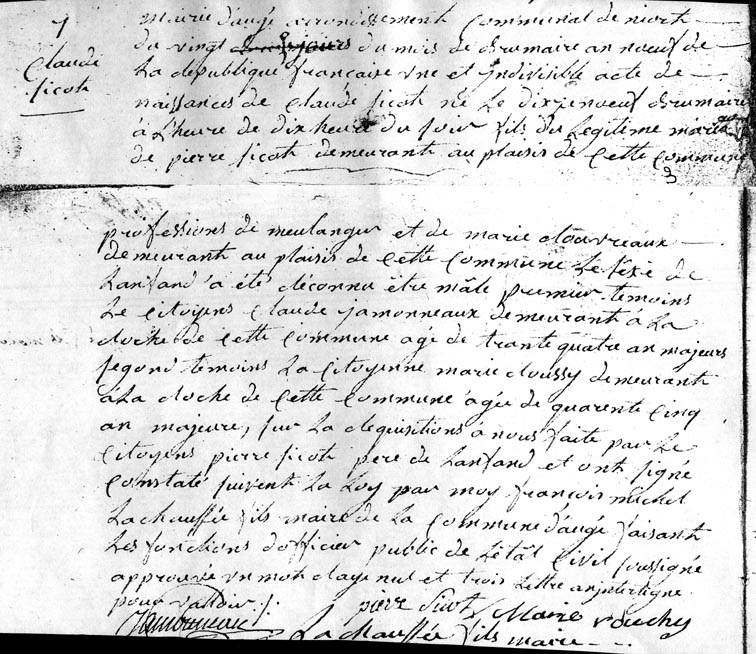 1
Claude
sicot
mairie daugé arrondissement communal de niort
du vingt du mois de brumaire an neuf de
La République francaise une et indivisible acte de
naissances de Claude sicot né Le dixzeneuf Brumaire
à L'heure de dix heure du soir fils du Legitime mariage
de pierre sicot demeurant au plaisis de Cette Commune
3
professions de meulanger et de marie
demeurant au plaisis de Cette Commune Le sexe de
Lanfand à été déconnu être mâle premier temoins
Le Citoyens Claude jamonneaux demeurant à La
cloche de Cette Commune agé de trante quatre an majeurs
segond temoins La Citoyenne marie doussy demeurant
à La cloche de Cette Commune agée de quarente Cinq
an majeure, sur La Requisitions à nous faite par Le
Citoyens pierre sicot pere de Lanfand et ont signé
Constaté suivent La Loy par moy françois michel
Lachauffée fils maire de La Commune d'augé faisant
Les fonctions d'officier public de Létât Civil soussigné
approuvée un mot Rayé nul et trois Lettre an interligne
pour valoir /.
pierre Sicot Marie
Jamonneau Lachauffée fils maire